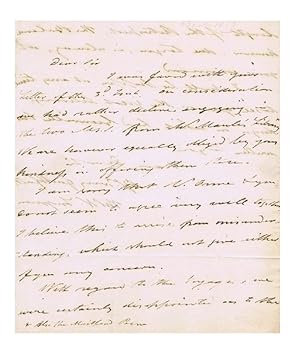 Dear Sir
I was favor'd with your
letter of the 3d Inst. on consideration
we had rather decline engaging in
the two
We are however equally obliged by your
kindness in offering them
I am sorry that Mr. & you
do not seem to agree very well together
I believe this to arise from misunder=
standing, which should not give either
of you any concern.
With regard to the Voyage, we
were certainly disappointed as to the